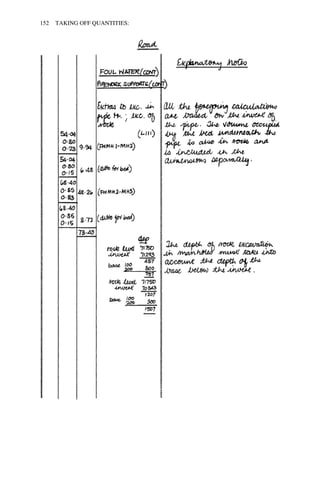 152 TAKING OFF QUANTITIES:
Road
Explanatory Notes
FOUL WATER (CONT)
PIPEWORK SUPPORTS (CONT)
Extras to exc. in
pipe tr. ; exc. of
rock
(L11)
54·04
0·80
0·23 9·94 (FWMH 1-MH2)
54·04
0·80
0·15 6·48 (ditto for bed)
68·40
0·85 48·26 (FWMH2-MH3)
0·83
68·40
0·85 8·73 (ditto for bed)
0·15
73·40
All the foregoing calculations
are based on the invert of
the pipe. The volume occupied
by the bed underneath the
pipe is also in rock and
is included in the
dimensions separately.
dep
rock level 71750
invert 71293
457
base 100
200 300
757
rock level 71750
invert 70543
1207
base 100
200 300
1507
The depth of rock excavation
in manholes must take into
account the depth of the
base below the invert.